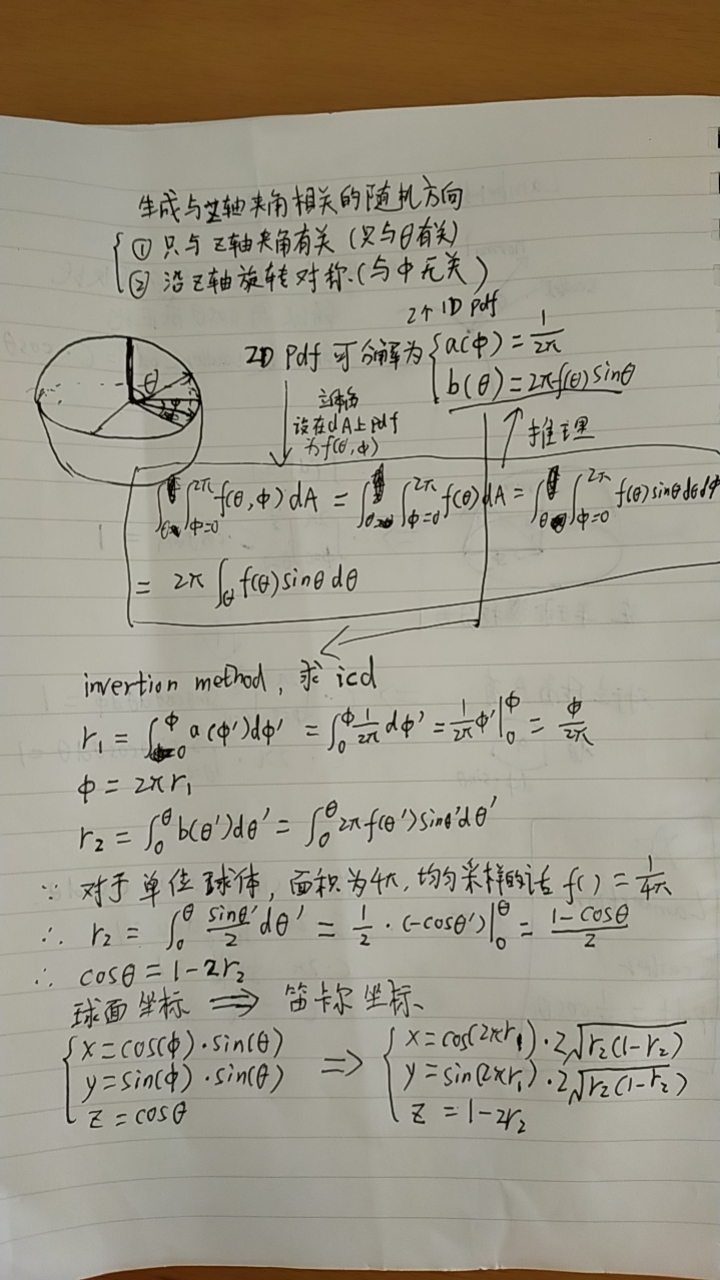 生成与Z轴夹角相关的随机方向
① 只与Z轴夹角有关 (只与θ有关)
② 沿Z轴旋转对称.(与φ无关)
2个1D Pdf
2D Pdf 可分解为 { a(φ) = 1/2π
b(θ) = 2πf(θ)sinθ
θ
立体角
设在dA上pdf
为f(θ,φ)
推理
∫∫_{φ=0}^{2π} f(θ,φ)dA = ∫∫_{φ=0}^{2π} f(θ)dA = ∫∫_{φ=0}^{2π} f(θ)sinθdθdφ
= 2π∫_θ f(θ)sinθdθ
invertion method, 求icd
r₁ = ∫_0^φ a(φ')dφ' = ∫_0^φ 1/2π dφ' = 1/2π φ'|_0^φ = φ/2π
φ = 2πr₁
r₂ = ∫_0^θ b(θ')dθ' = ∫_0^θ 2πf(θ')sinθ'dθ'
∵ 对于单位球体, 面积为4π, 均匀采样的话 f() = 1/4π
∴ r₂ = ∫_0^θ sinθ'/2 dθ' = 1/2 · (-cosθ')|_0^θ = (1-cosθ)/2
∴ cosθ = 1-2r₂
球面坐标 ⇒ 笛卡尔坐标
{ x = cos(φ)·sin(θ) ⇒ { x = cos(2πr₁)·2√(r₂(1-r₂))
y = sin(φ)·sin(θ) y = sin(2πr₁)·2√(r₂(1-r₂))
z = cosθ z = 1-2r₂